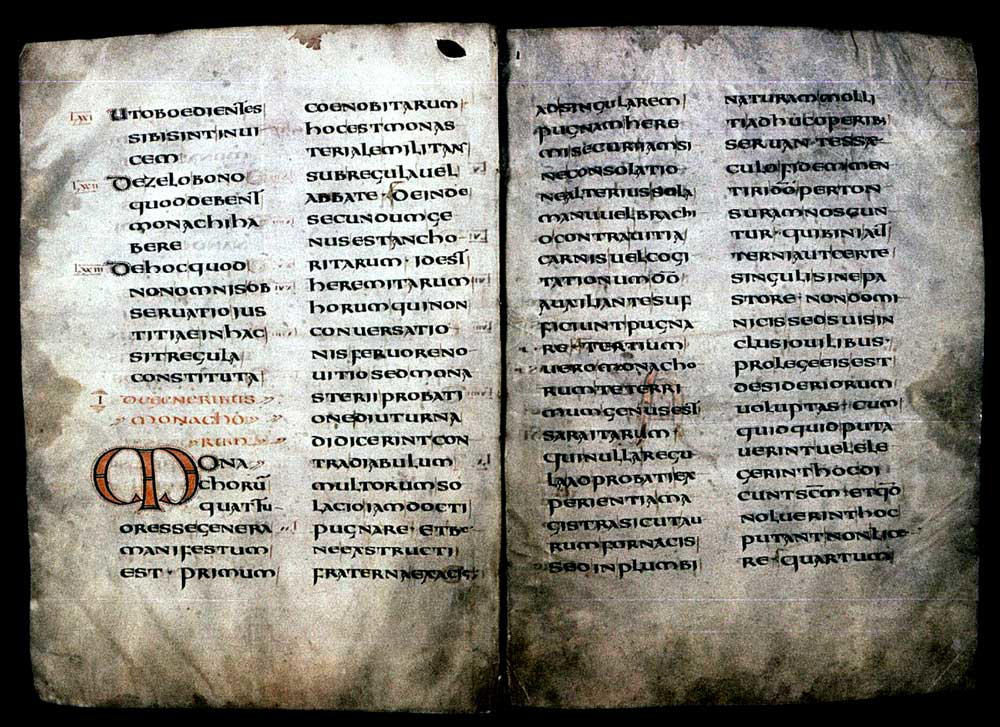 LXXI UTOBOEDIENTES
SIBISINTINUI
CEM
LXXII DEZELOBONO
QUODDEBENT
MONACHIHA
BERE
LXXIII DEHOCQUOD
NONOMNISOB
SERUATIOIUS
TITIAEINHAC
SITREGULA
CONSTITUTA
I DEGENERIBUS
MONACHO
RUM
MONA
CHORŪ
QUATTU
ORESSEGENERA
MANIFESTUM
EST · PRIMUM
COENOBITARUM
HOCESTMONAS
TERIALEMILITANS
SUBREGULAUEL
ABBATE · DEINDE
SECUNDUMGE
NUSESTANCHO
RITARUM · IDEST
HEREMITARUM
HORUMQUINON
CONUERSATIO
NISFERUORENO
UITIOSEDMONA
STERIIPROBATI
ONEDIUTURNA
DIDICERINTCON
TRADIABULUM
MULTORUMSO
LACIOIAMDOCTI
PUGNARE · ETBE
NEEXSTRUCTI
FRATERNAEXACIE
ADSINGULAREM
PUGNAMHERE
MISECURIIAMSI
NECONSOLATIO
NEALTERIUSSOLA
MANUUELBRACHI
OCONTRAUITIA
CARNISUELCOGI
TATIONUMDŌ
AUXILIANTESUF
FICIUNTPUGNA
RE · TERTIUM
UEROMONACHO
RUMTETERRI
MUMGENUSEST
SARAITARUM
QUINULLAREGU
LAADPROBATIEX
PERIENTIAMA
GISTRASICUTAU
RUMFORNACIS
SEDINPLUMBI
NATURAMMOLLI
TIADHUCOPERIBƷ
SERUANTESSAE
CULOFIDEMMEN
TIRIDŌPERTON
SURAMNOSCUN
TUR · QUIBINIAUT
TERNIAUTCERTE
SINGULISINEPA
STORE · NONDOMI
NICISSEDSUISIN
CLUSIOUILIBUS ·
PROLEGEEISEST
DESIDERIORUM
UOLUPTAS · CUM
QUIDQUIDPUTA
UERINTUELELE
GERINTHOCDI
CUNTSCM̄ · ETQD̄
NOLUERINTHOC
PUTANTNONLICE
RE · QUARTUM